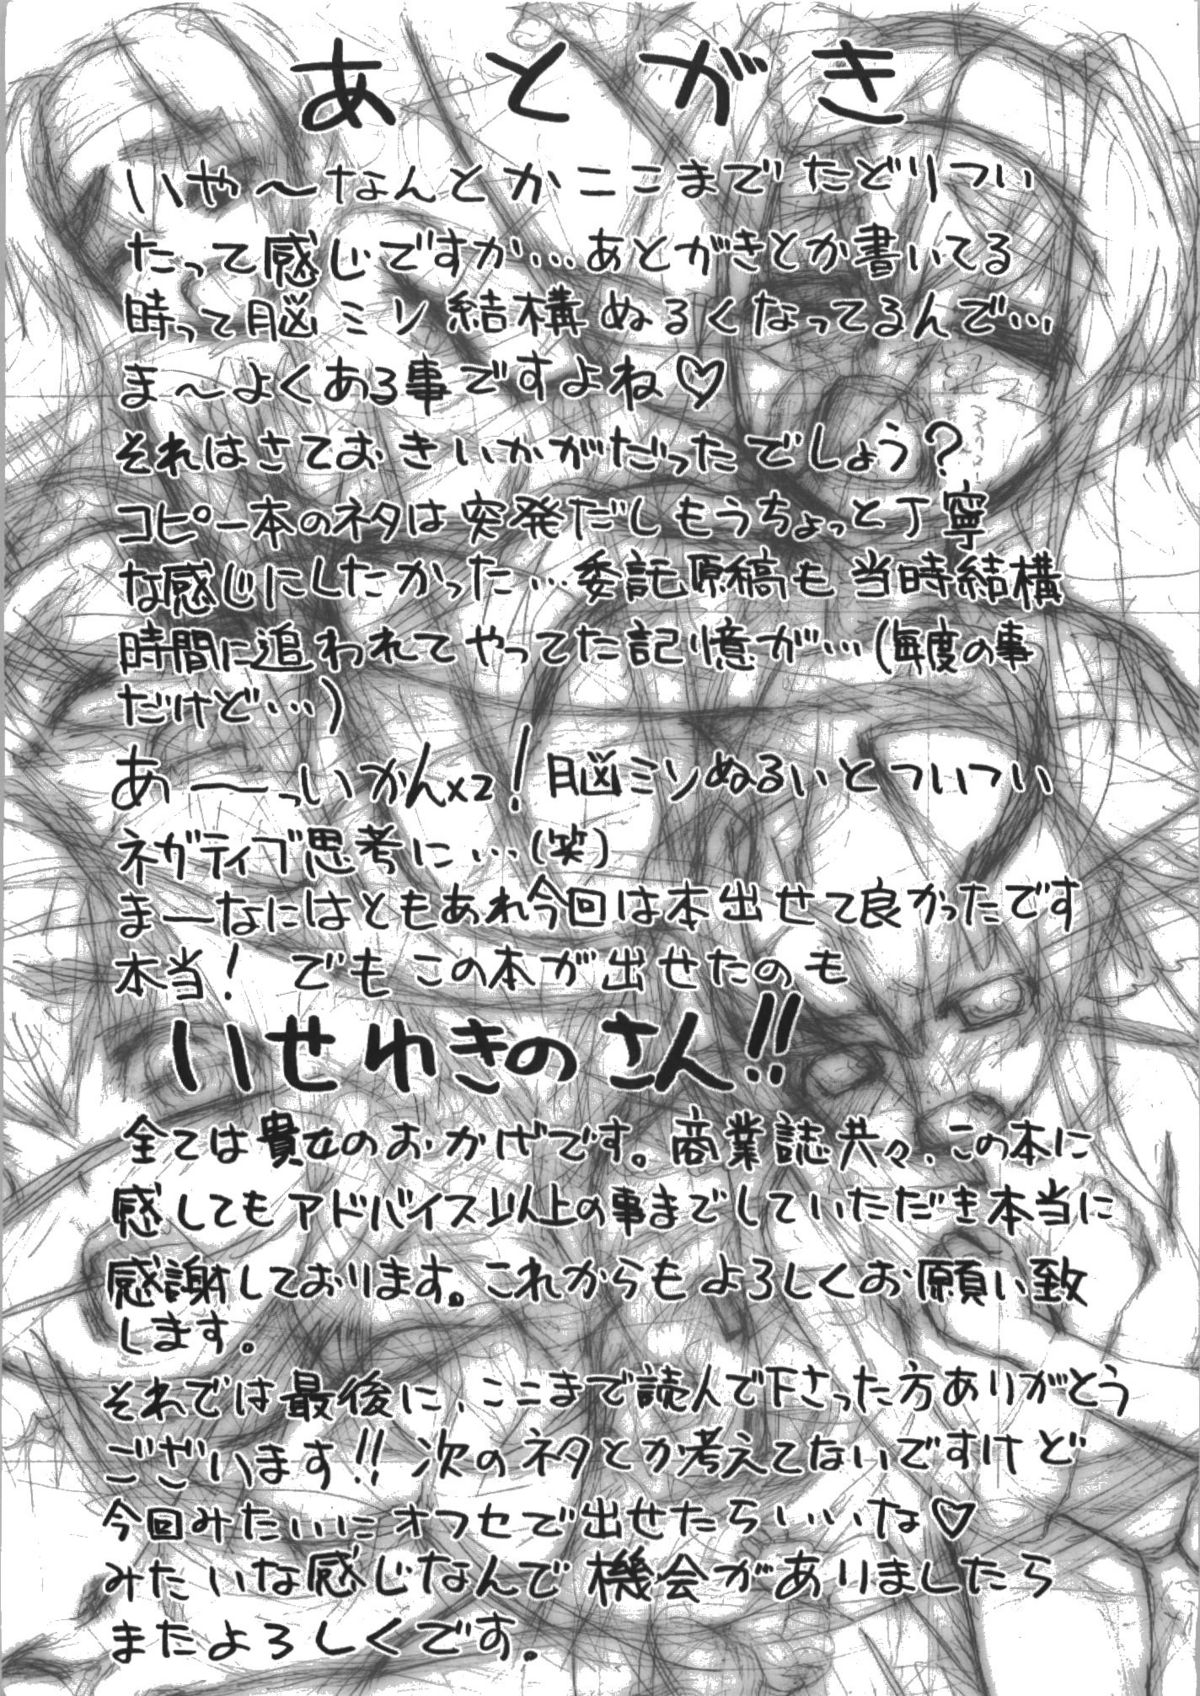 あとがき
いや～なんとかここまでたどりつい
たって感じですか…あとがきとか書いてる
時って脳ミソ結構ぬるくなってるんで…
ま～よくある事ですよね♡
それはさておきいかがだったでしょう?
コピー本のネタは突発だしもうちょっと丁寧
な感じにしたかった…委託原稿も当時結構
時間に追われてやってた記憶が…(毎度の事
だけど…)
あ～っいかん×2!脳ミソぬるいとついつい
ネガティブ思考に…(笑)
まーなにはともあれ今回は本出せて良かったです
本当! でもこの本が出せたのも
いせわきのさん!!
全ては貴女のおかげです。商業誌共々、この本に
感してもアドバイス以上の事までしていただき本当に
感謝しております。これからもよろしくお願い致
します。
それでは最後に、ここまで読んで下さった方ありがとう
ございます!!次のネタとか考えてないですけど
今回みたいにオフセで出せたらいいな♡
みたいな感じなんで機会がありましたら
またよろしくです。